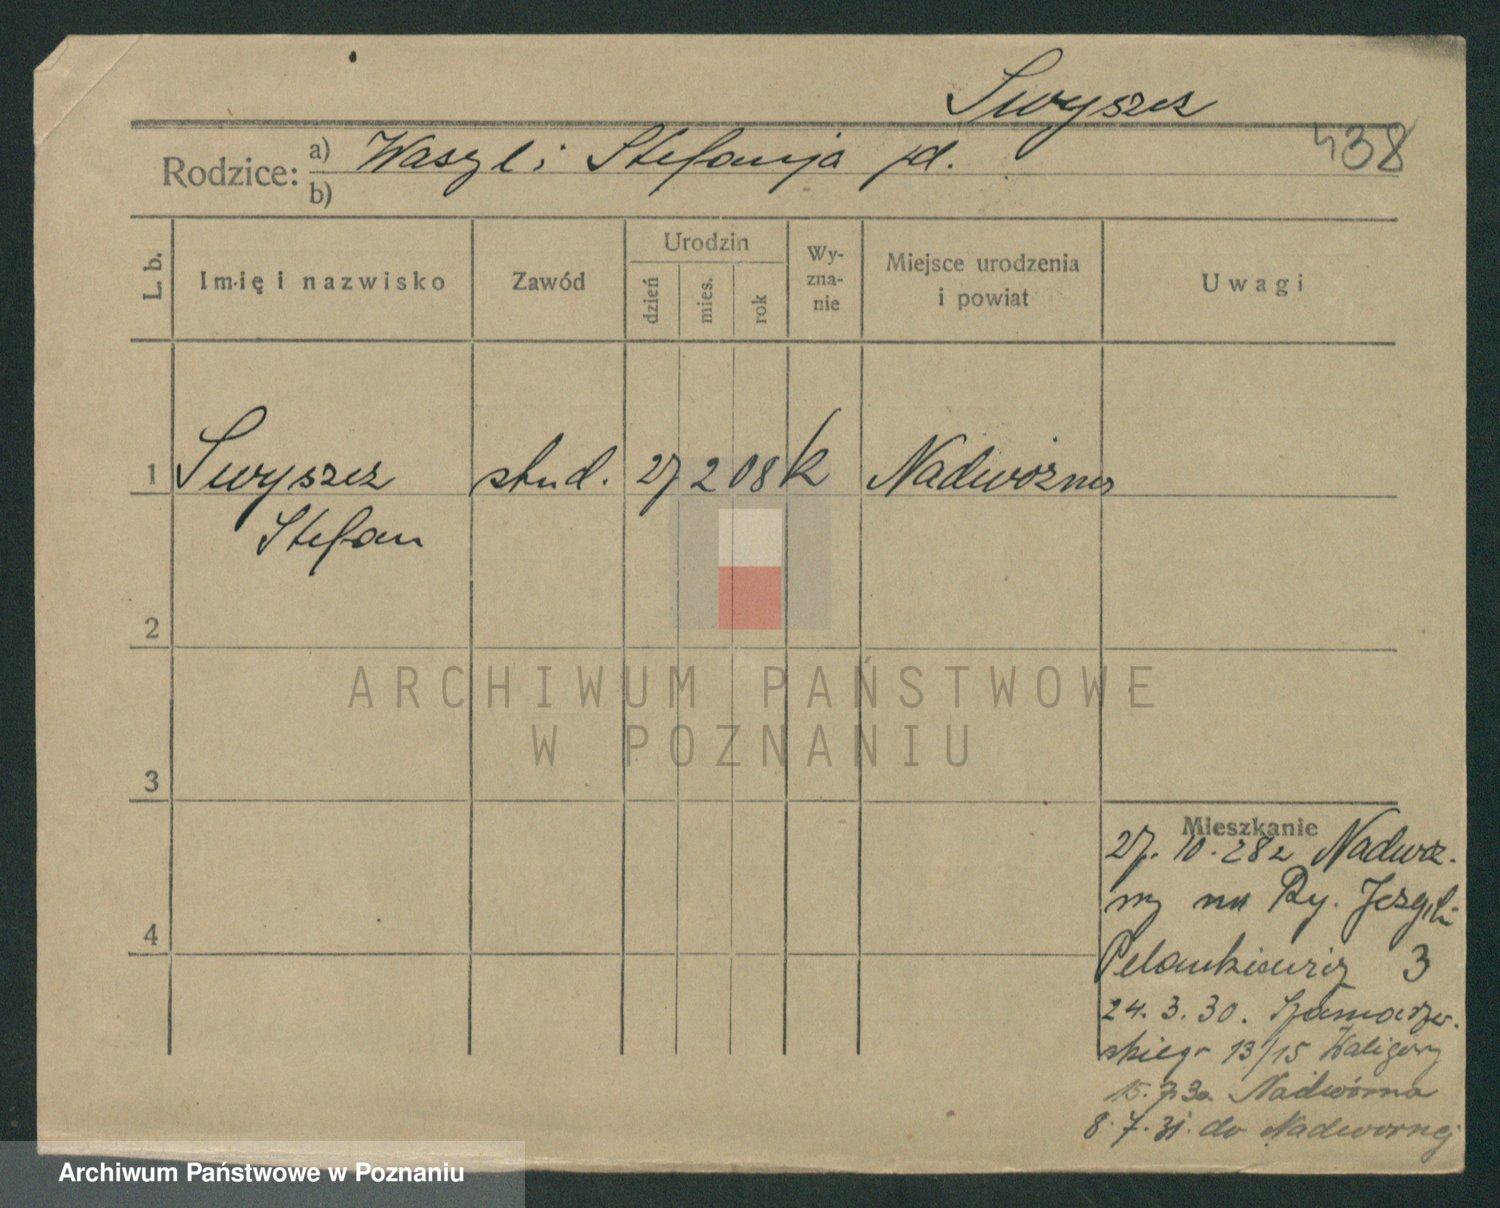 Swyszcz
438
Rodzice: a) Waszyl i Stefanja jd.
b)
L. b.
Imię i nazwisko
Zawód
Urodzin
dzień
mies.
rok
Wy-
zna-
nie
Miejsce urodzenia
i powiat
Uwagi
1 Swyszcz stud. 27 2 08 k Nadwórna
Stefan
2
3
4
Mieszkanie
27. 10. 28 z Nadwór-
ny na Ry.
3
24. 3. 30. Szamarzew-
skiego 13/15 Kaligóry
15. 7. 30 Nadwórna
8. 7. 31. do Nadwornej
ARCHIWUM PAŃSTWOWE
W POZNANIU
Archiwum Państwowe w Poznaniu